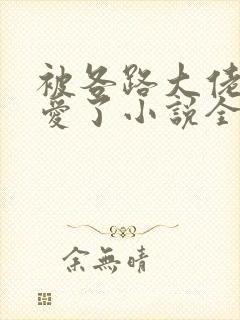 被各路大佬
愛了小說全
余無晴